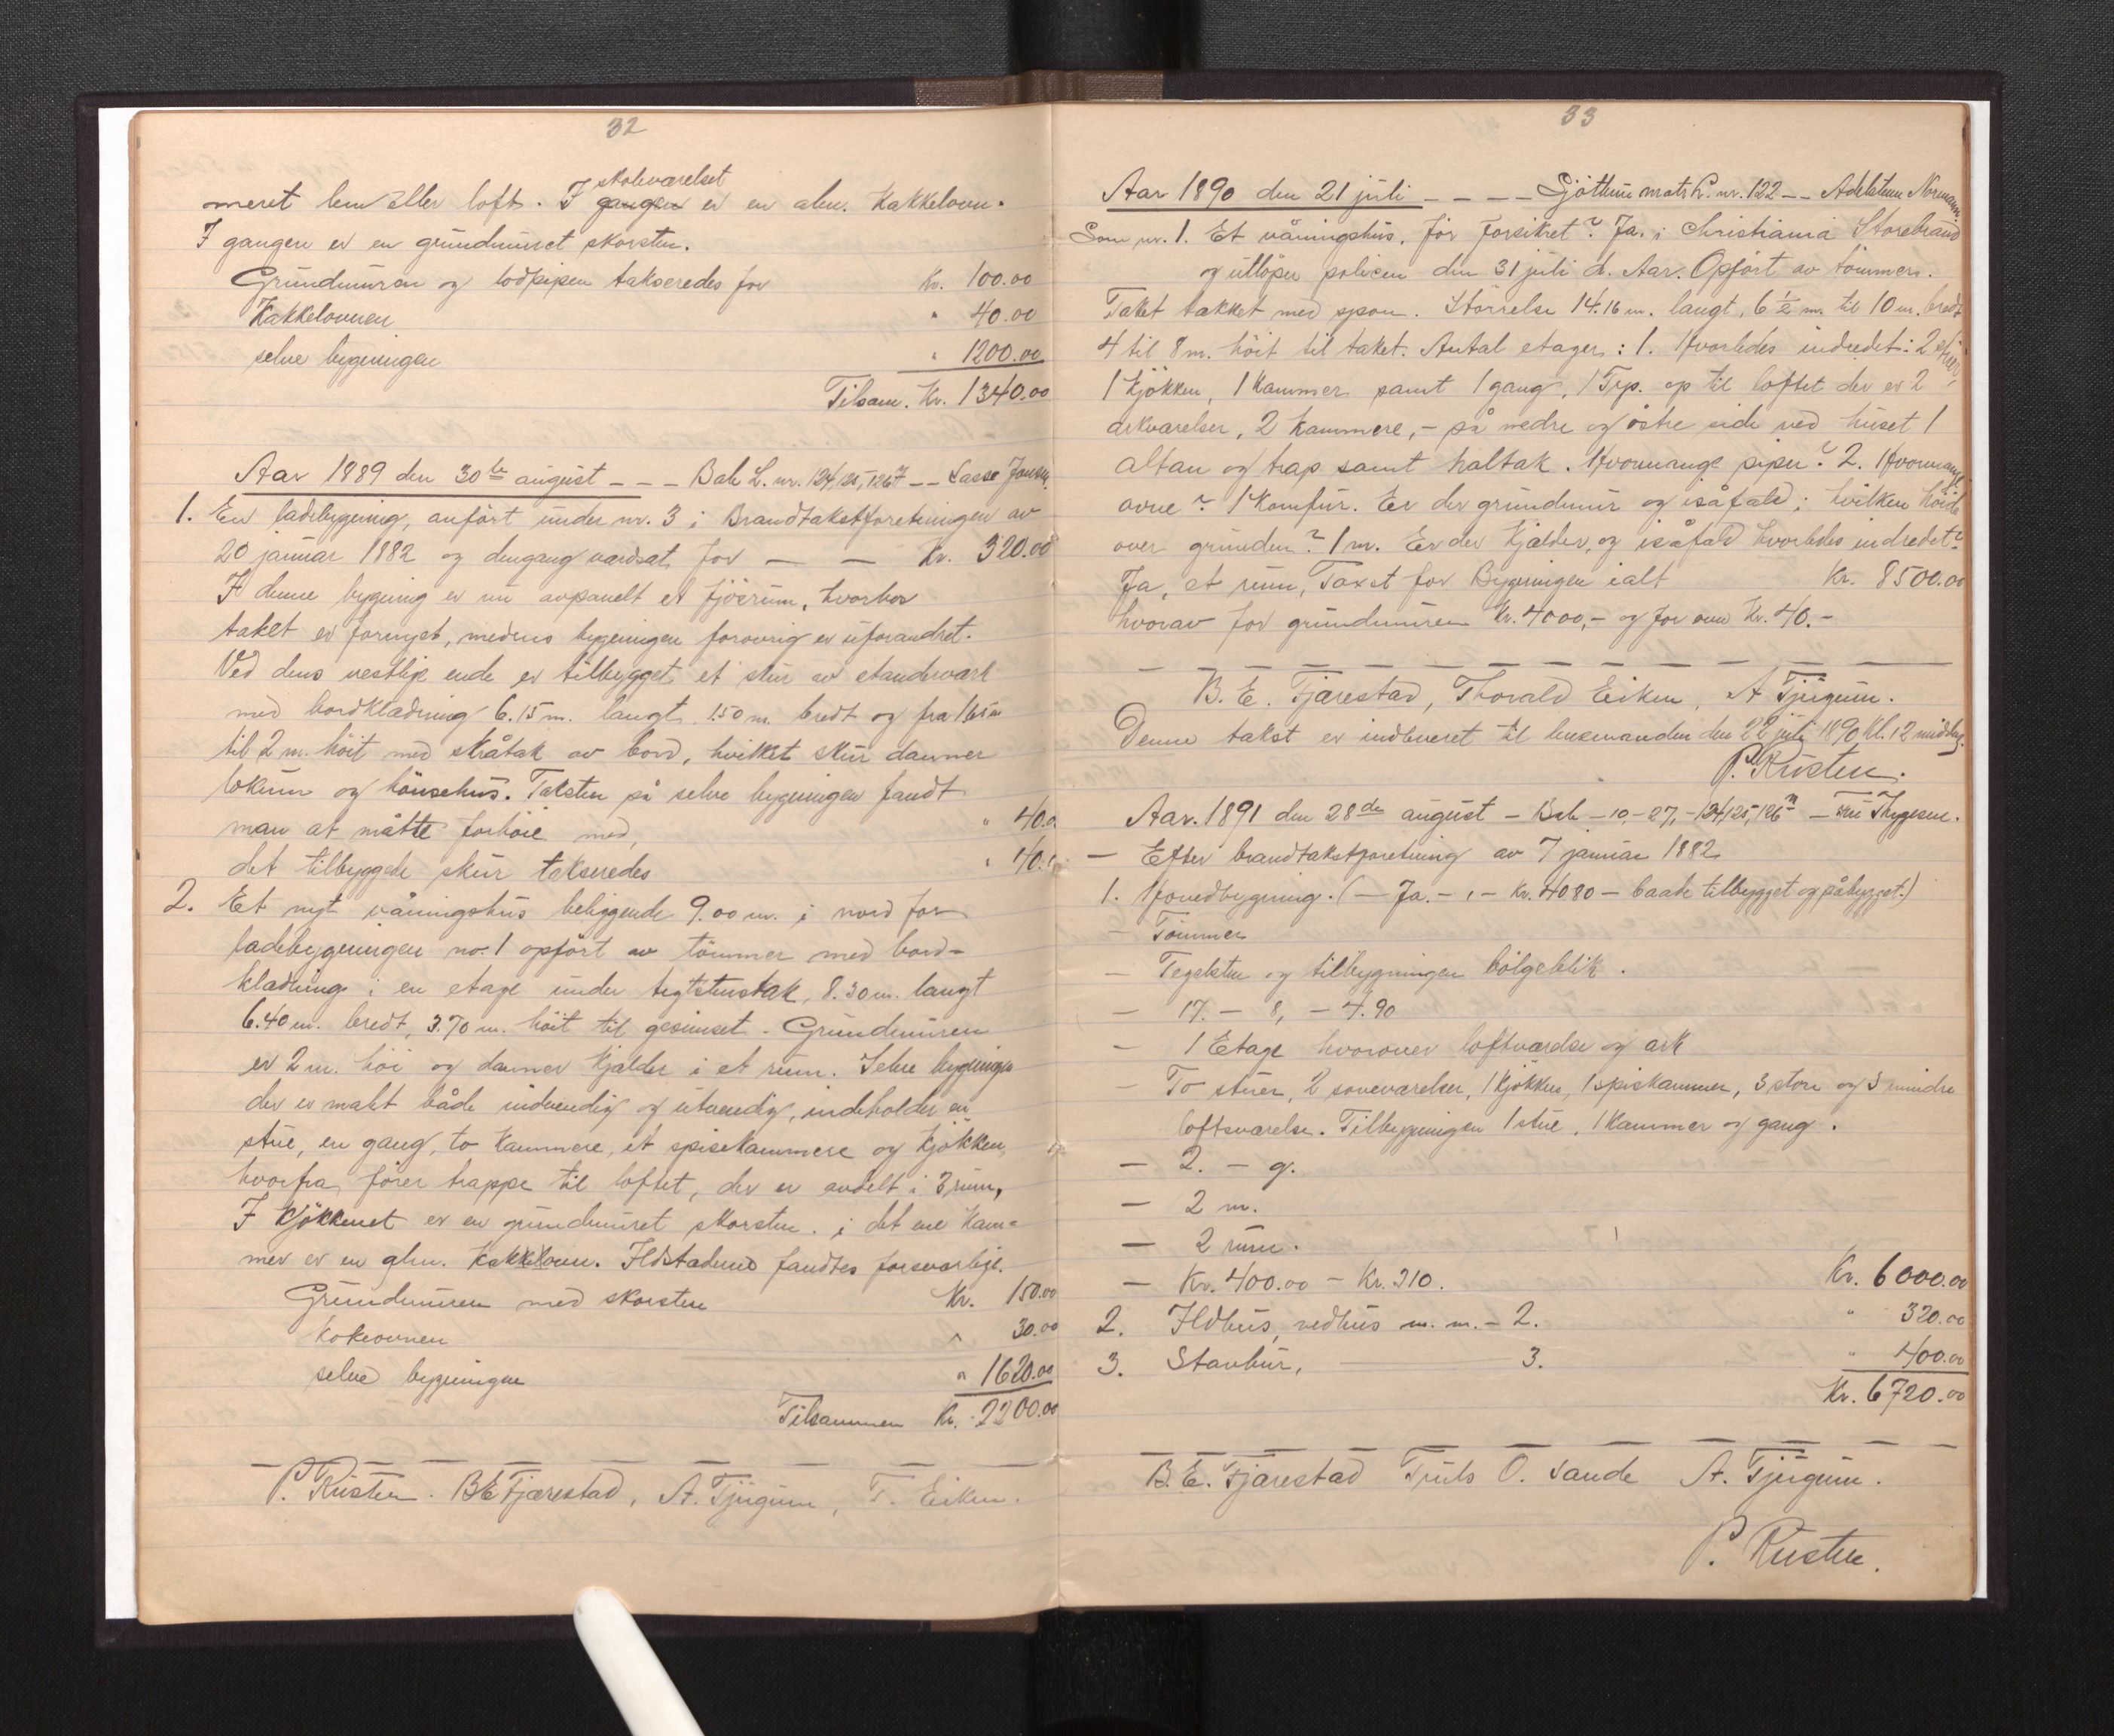 32
skoleværelset
meret lem eller loft. I gangen er en alm. Kakkelovn.
I gangen er en grundmuret skorsten.
Grundmuren og lodpipen takseredes for Kr. 100.00
Kakkelovnen " 40.00
selve bygningen " 1200.00
Tilsam. Kr. 1340.00
Aar 1889 den 30te august - - - Bale L. nr. 124, 125, 126 - - Lasse Jonsen
1. En ladebygning, anført under nr. 3 i Brandtakstforetningen av
20 januar 1882 og dengang værdsat for — — Kr. 320.00
I denne bygning er nu avpanelt et fjösrum, hvorhos
taket er fornyet, medens bygningen forøvrig er uforandret.
Ved dens vestlige ende er tilbygget et skur av standerværk
med bordklædning 6.15 m. langt 1.50 m. bredt og fra 1.65 m
til 2 m. höit med skråtak av bord, hvilket skur danner
lokum og hönsehus. Taksten på selve bygningen fandt
man at måtte forhöie med, " 40.0
det tilbyggede skur takseredes " 40.
2. Et nyt våningshus beliggende 9.00 m. i nord for
ladebygningen no. 1 opfört av tömmer med bord-
klædning i en etage under teglstenstak, 8.30 m. langt
6.40 m. bredt, 3.70 m. höit til gesimset. Grundmuren
er 2 m. höi og danner kjælder i et rum. Selve bygningen
der er malt både indvendig og utvendig, indeholder en
stue, en gang, to kammere, et spisekammere og kjökken,
hvorfra förer trappe til loftet, der er avdelt i 3 rum,
I kjökkenet er en grundmuret skorsten. i det ene kam-
mer er en alm. kakkelovn. Ildstederne fandtes forsvarlige.
Grundmuren med skorsten Kr. 150.00
Kokeovnen " 30.00
selve bygningen " 1620.00
Tilsammen Kr. 2200.00
P. Risten. B E Fjærestad, A. Tjugum, T. Eiken.
33
Aar 1890 den 21 juli - - - - Gjöthun matr. L. nr. 122 - - Adelsteen Normann
Som nr. 1. Et våningshus, för forsikret? Ja. i Christiania Storebrand
og utlöper policen den 31 juli d. Aar. Opfört av tömmer.
Taket tækket med spon. Störrelse 14.16 m. langt, 6 ½ m. til 10 m. bredt
4 til 8 m. höit til taket. Antal etager: 1. Hvorledes indredet: 2 stuer,
1 kjökken, 1 kammer samt 1 gang, 1 Trp. op til loftet der er 2
arkværelser, 2 kammere, - på nedre og östre side ved huset 1
altan og trap samt haltak. Hvormange piper? 2. Hvormange
ovne? 1 komfur. Er der grundmur og isåfald; hvilken höide
over grunden? 1 m. Er der kjælder, og isåfald hvorledes indredet?
Ja, et rum, Taxst for Bygningen ialt Kr. 8500.00
hvorav for grundmuren Kr. 4000,- og for ovn Kr. 40.-
B. E. Fjærestad, Thorald Eiken, A Tjugum.
Denne takst er indleveret til lensmanden den 22 juli 1890 kl. 12 middag.
P. Risten.
Aar. 1891 den 28de august - Bale - 10, - 27, - 124, 125, 126 - Fru Thygesen.
— Efter brandtakstforetning av 7 januar 1882
1. Hovedbygning. (— Ja. -, - Kr. 4080 - baade tilbygget og påbygget.)
— Tömmer
— Tegelsten og tilbygningen bölgeblik.
— 17. - 8, - 4.90
— 1 Etage hvorover loftværelse og ark
— To stuer, 2 soveværelser, 1 kjökken, 1 spiskammer, 3 store og 3 mindre
loftsværelse. Tilbygningen 1 stue, 1 kammer og gang.
— 2. - 9.
— 2 m.
— 2 rum.
— Kr. 400.00 - Kr. 210. Kr. 6000.00
2. Ildhus, vedhus m. m. - 2. " 320.00
3. Stavbur, — 3. " 400.00
Kr. 6720.00
B. E. Fjærestad Truls O. Sande A. Tjugum.
P. Risten.